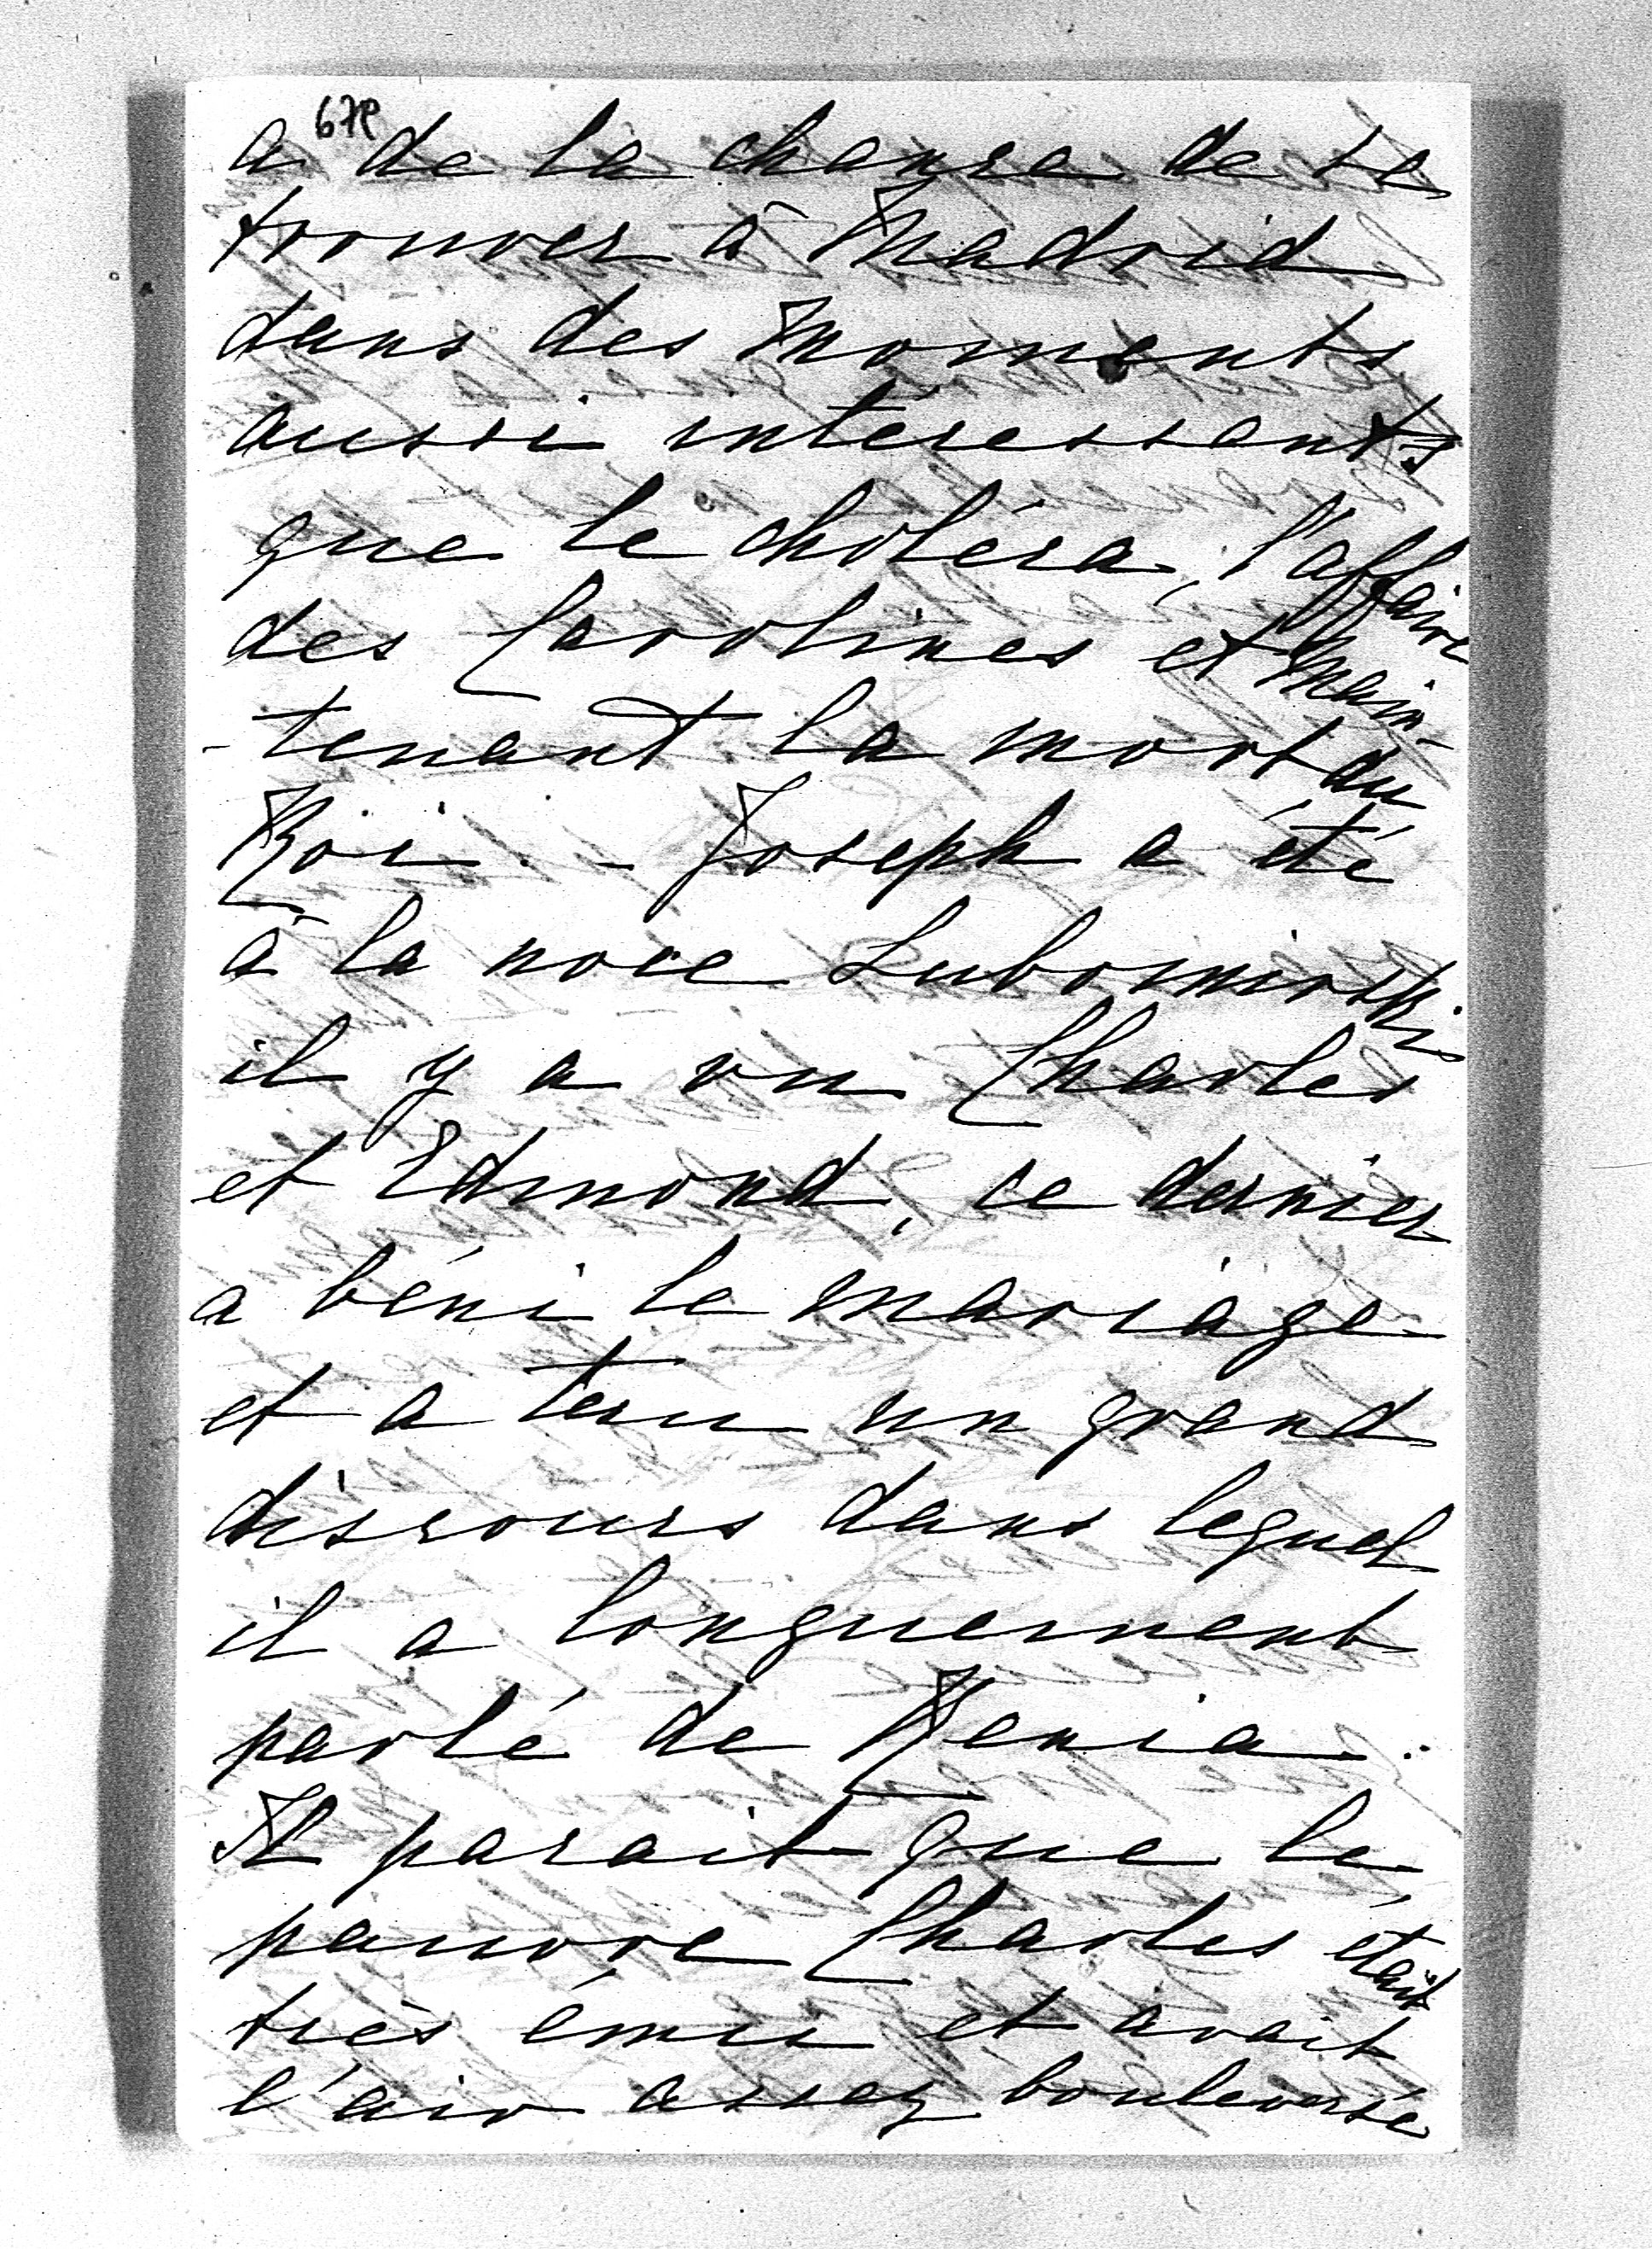 a de la chance de se
trouver à Madrid
dans des moments
aussi intéressants
que le choléra, l'affaire
des Carolines et main-
-tenant la mort du
Roi. - Joseph a été
à la noce Lubomirski
il y a vu Charles
et Edmond, ce dernier
a béni le mariage
et a tenu un grand
discours dans lequel
il a longuement
parlé de Xenia.
Il parait que le
pauvre Charles était
très ému et avait
l'air assez bouleversé